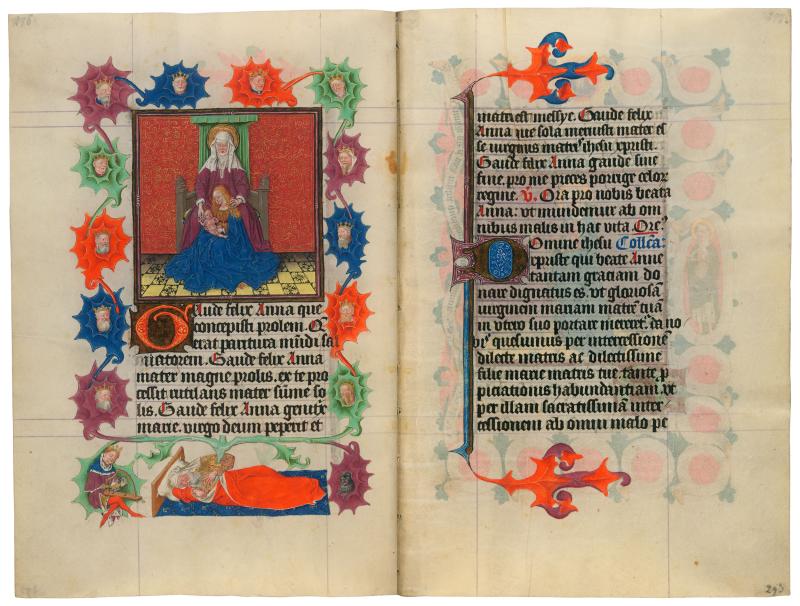 Gaude felix Anna que
concepisti prolem. Q̃
erat paritura mũdi sal
uatorem. Gaude felix Anna
mater magne prolis. ex te pro
cessit rutilans mater sũme so
lis. Gaude felix Anna genitͥx
marie. virgo deum peperit et
matri est messye. Gaude felix
Anna que sola menisti mater es
se virginis matrͥs ihesu xpristi.
Gaude felix Anna gaude sine
fine. pro me preces porrige celorͫ
regine. V̾. Ora pro nobis beata
Anna: vt mundemur ab om
nibus malis in hac vita. Or̃e
Domine ihesu Collẽa:
xpriste qui beate Anne
tantam graciam do
nare dignatus es. vt gloriosã
virginem mariam matrẽ tuã
in vtero suo portare mereret͛. da no
bis quesumus per intercessionẽ
dilecte matris ac dilectissime
filie marie matris tue. tante ꝓ
piciationis habundantiam. vt
per illam sacratissimã inter
cessionem ab omni malo pe
293